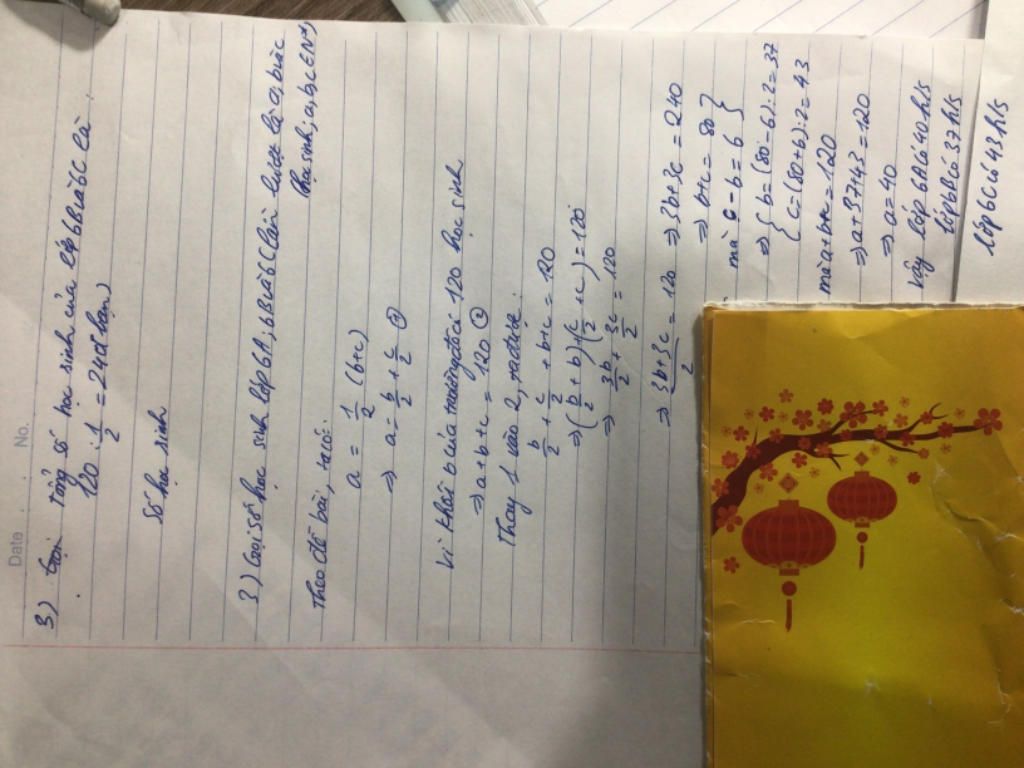 Date No.
3) Gọi tổng số học sinh của lớp 6B và 6C là
120 : 1/2 = 240 (bạn)
Số học sinh
3) Gọi số học sinh lớp 6A, 6B và 6C lần lượt là a, b và c
(học sinh, a, b, c ∈ N*)
Theo đề bài, ta có:
a = 1/2 (b+c)
⇒ a = b/2 + c/2 ①
Vì khối 6 của trường đó có 120 học sinh
⇒ a + b + c = 120 ②
Thay 1 vào 2, ta được:
b/2 + c/2 + b + c = 120
⇒ (b/2 + b) + (c/2 + c) = 120
⇒ 3b/2 + 3c/2 = 120
⇒ 3b+3c/2 = 120 ⇒ 3b+3c = 240
⇒ b+c = 80 }
mà c - b = 6 }
⇒ { b = (80-6):2 = 37
{ c = (80+6):2 = 43
mà a+b+c = 120
⇒ a+37+43 = 120
⇒ a = 40
Vậy lớp 6A có 40 h/s
lớp 6B có 37 h/s
lớp 6C có 43 h/s